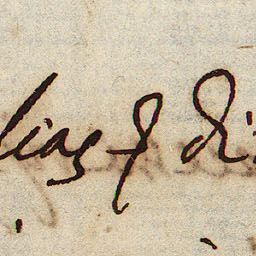 lias q̃ di